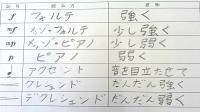 f フォルテ 強く
mf メッゾ・フォルテ 少し強く
mp メッゾ・ピアノ 少し弱く
p ピアノ 弱く
アクセント 音を目立たせて
クレシェンド だんだん強く
デクレシェンド だんだん弱く